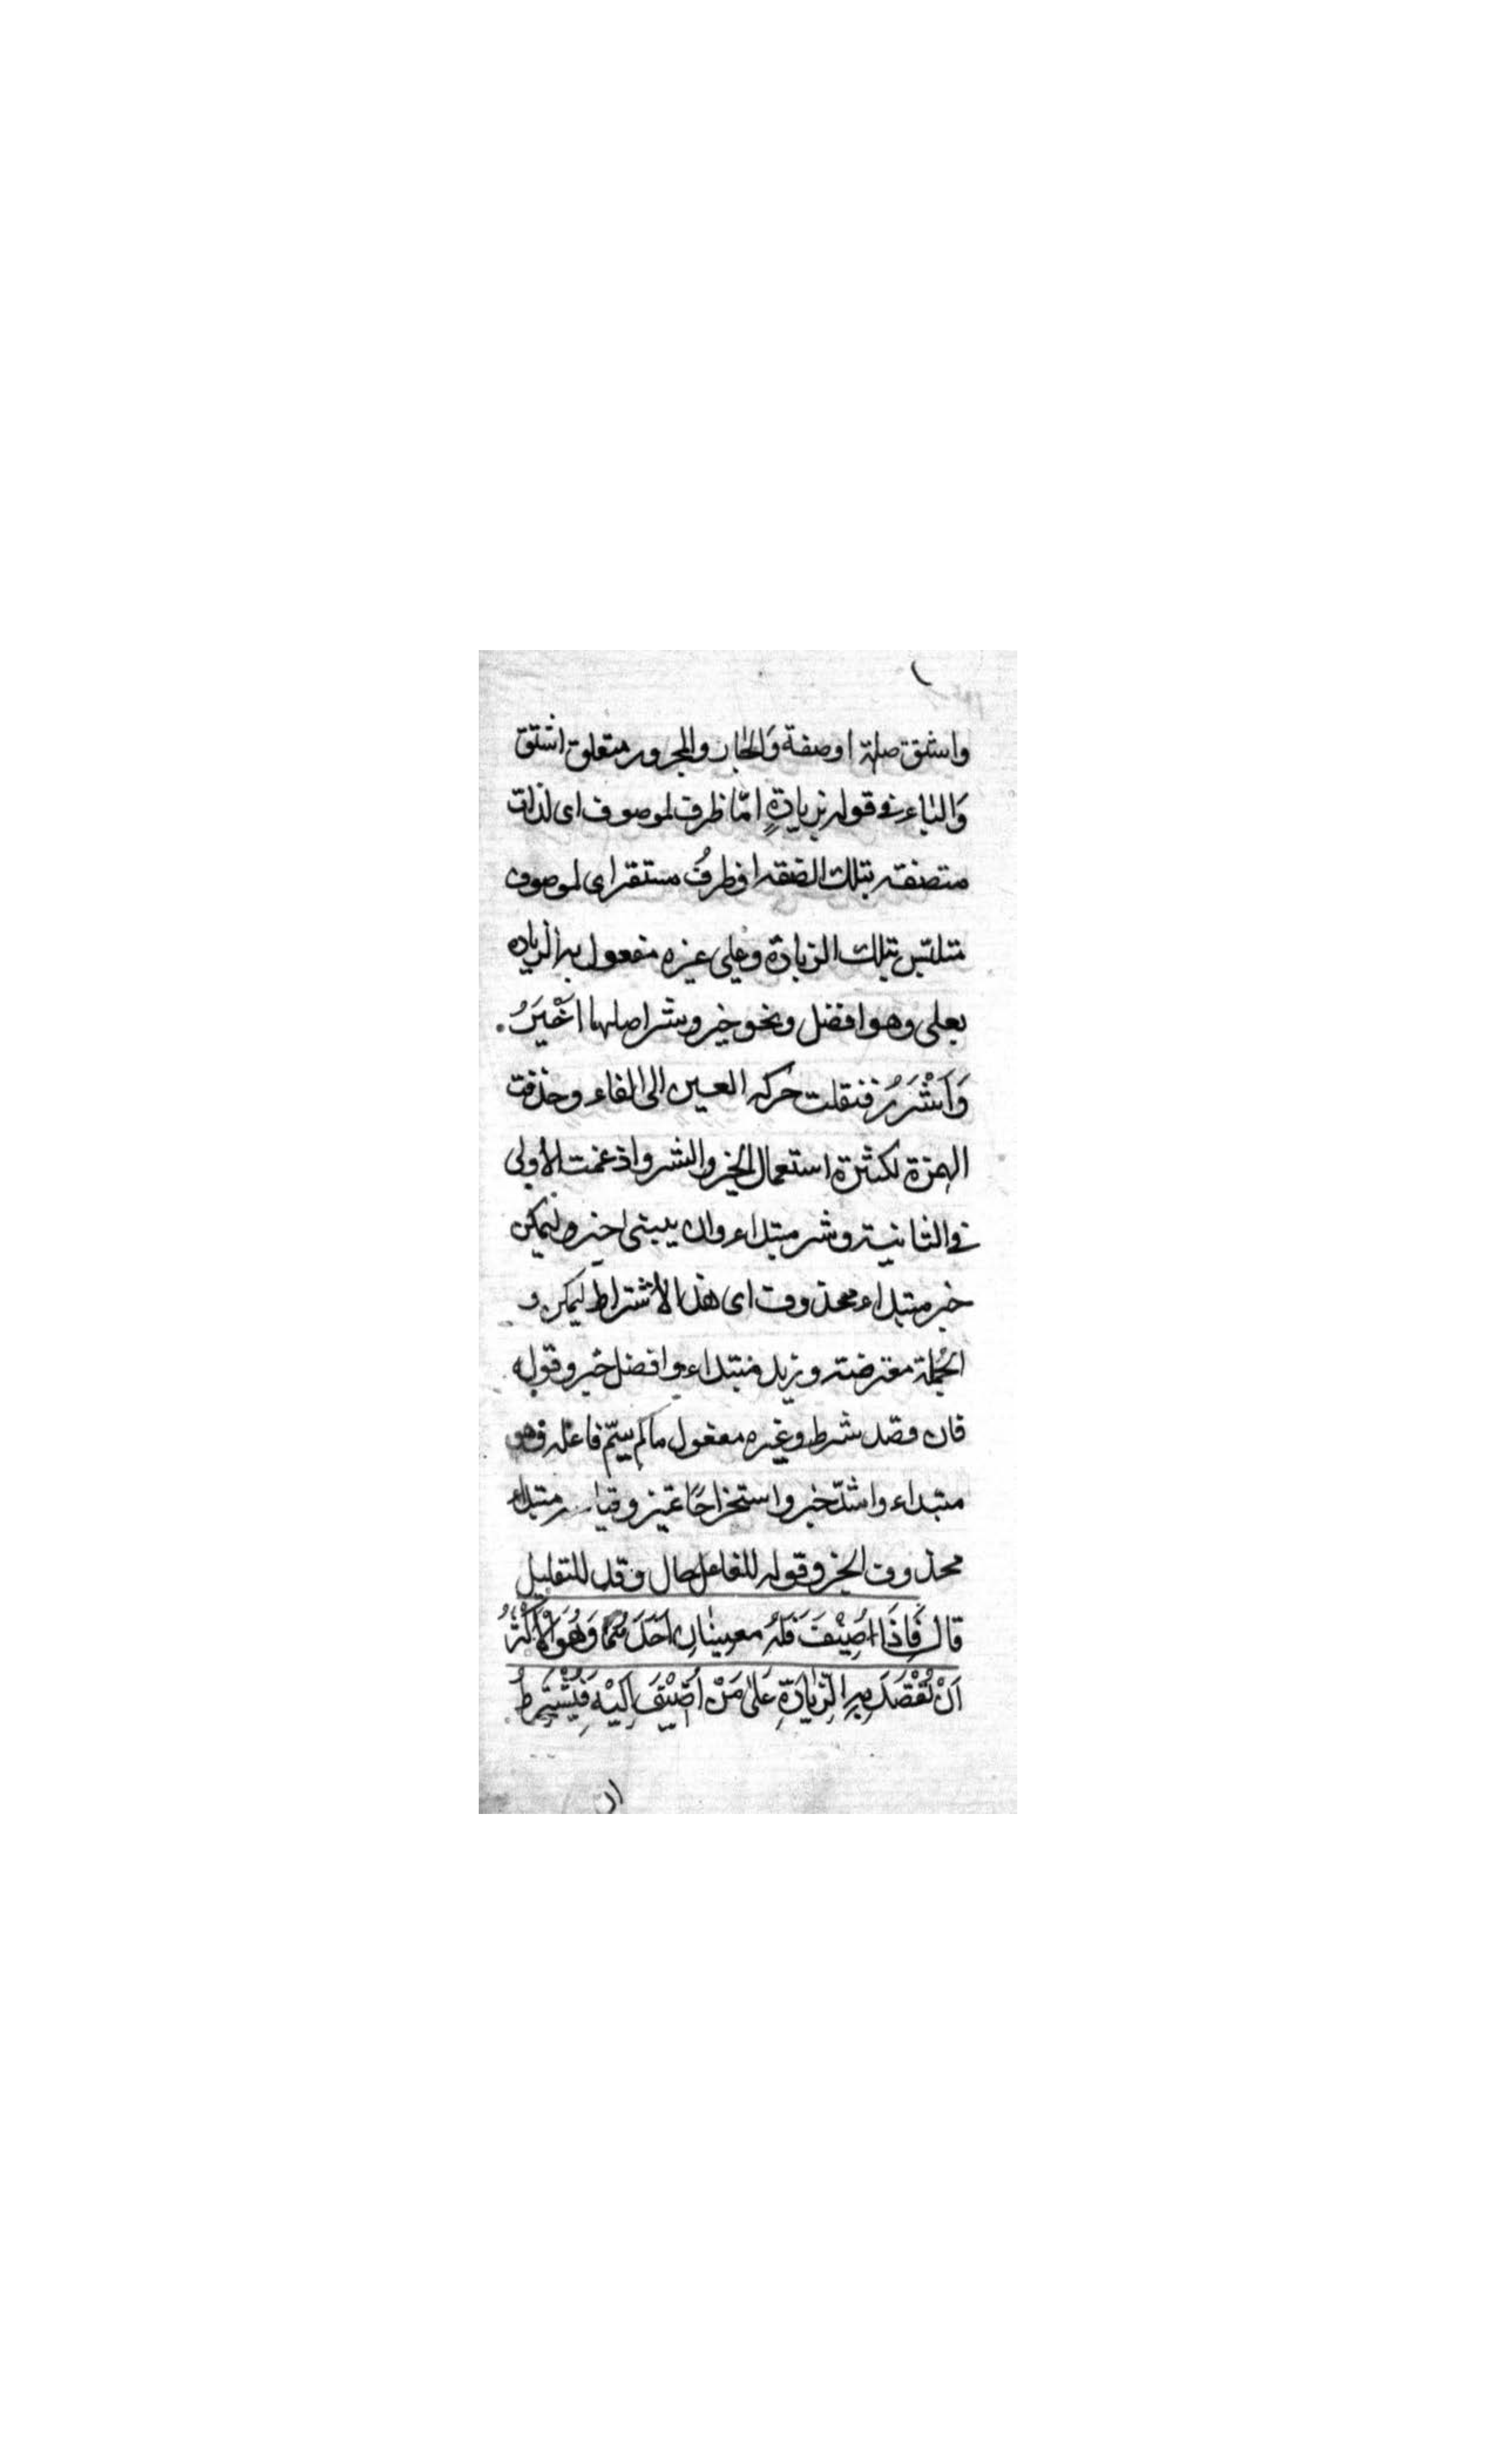 واشتق صلة اوصفة وَالجار والمجرور متعلق اشتق
وَالباء فى قوله بزيادةٍ امّا ظرف لموصوف اى لذات
متصفته بتلك الصفه اوظرفُ مستقر اى لموصوف
متلبّس بتلك الزيادة وعلى غيره مفعول به الزياده
بعلى وهو افضل ونحو خير وشر اصلهما اَخْيَرُ
وَاَشْرَرُ فنقلت حركه العين الى الفاء وحذفت
الهمزة لكثرة استعمال الخير والشر واذغمت الأولى
فى الثانية وشر مبتداء وان يبنى خبره ليمكن
خبر مبتداء محذوف اى هذا الاشتراط ليمكن و
الجُملة معترضته وزيد مبتداء وافضل خبر وقوله
فان قصد شرط وغيره مفعول مالم يسمّ فاعله فهو
مبتداء واشدّ خبر واستخراجًا تميز وقياسه مبتداء
محذوف الخبر وقوله للفاعل حال وقد للتقليل
قال فَاِذَا اُضِيْفَ فَلَهُ معنيان اَحَدُهُمَا وَهُوَ الْاَكْثَرُ
اَنْ تُقْصَدَ بِهِ الزِّيَادَةِ عَلىٰ مَنْ اُضِيْفَ اِلَيْهِ فَيُشْتَرطُ
ان